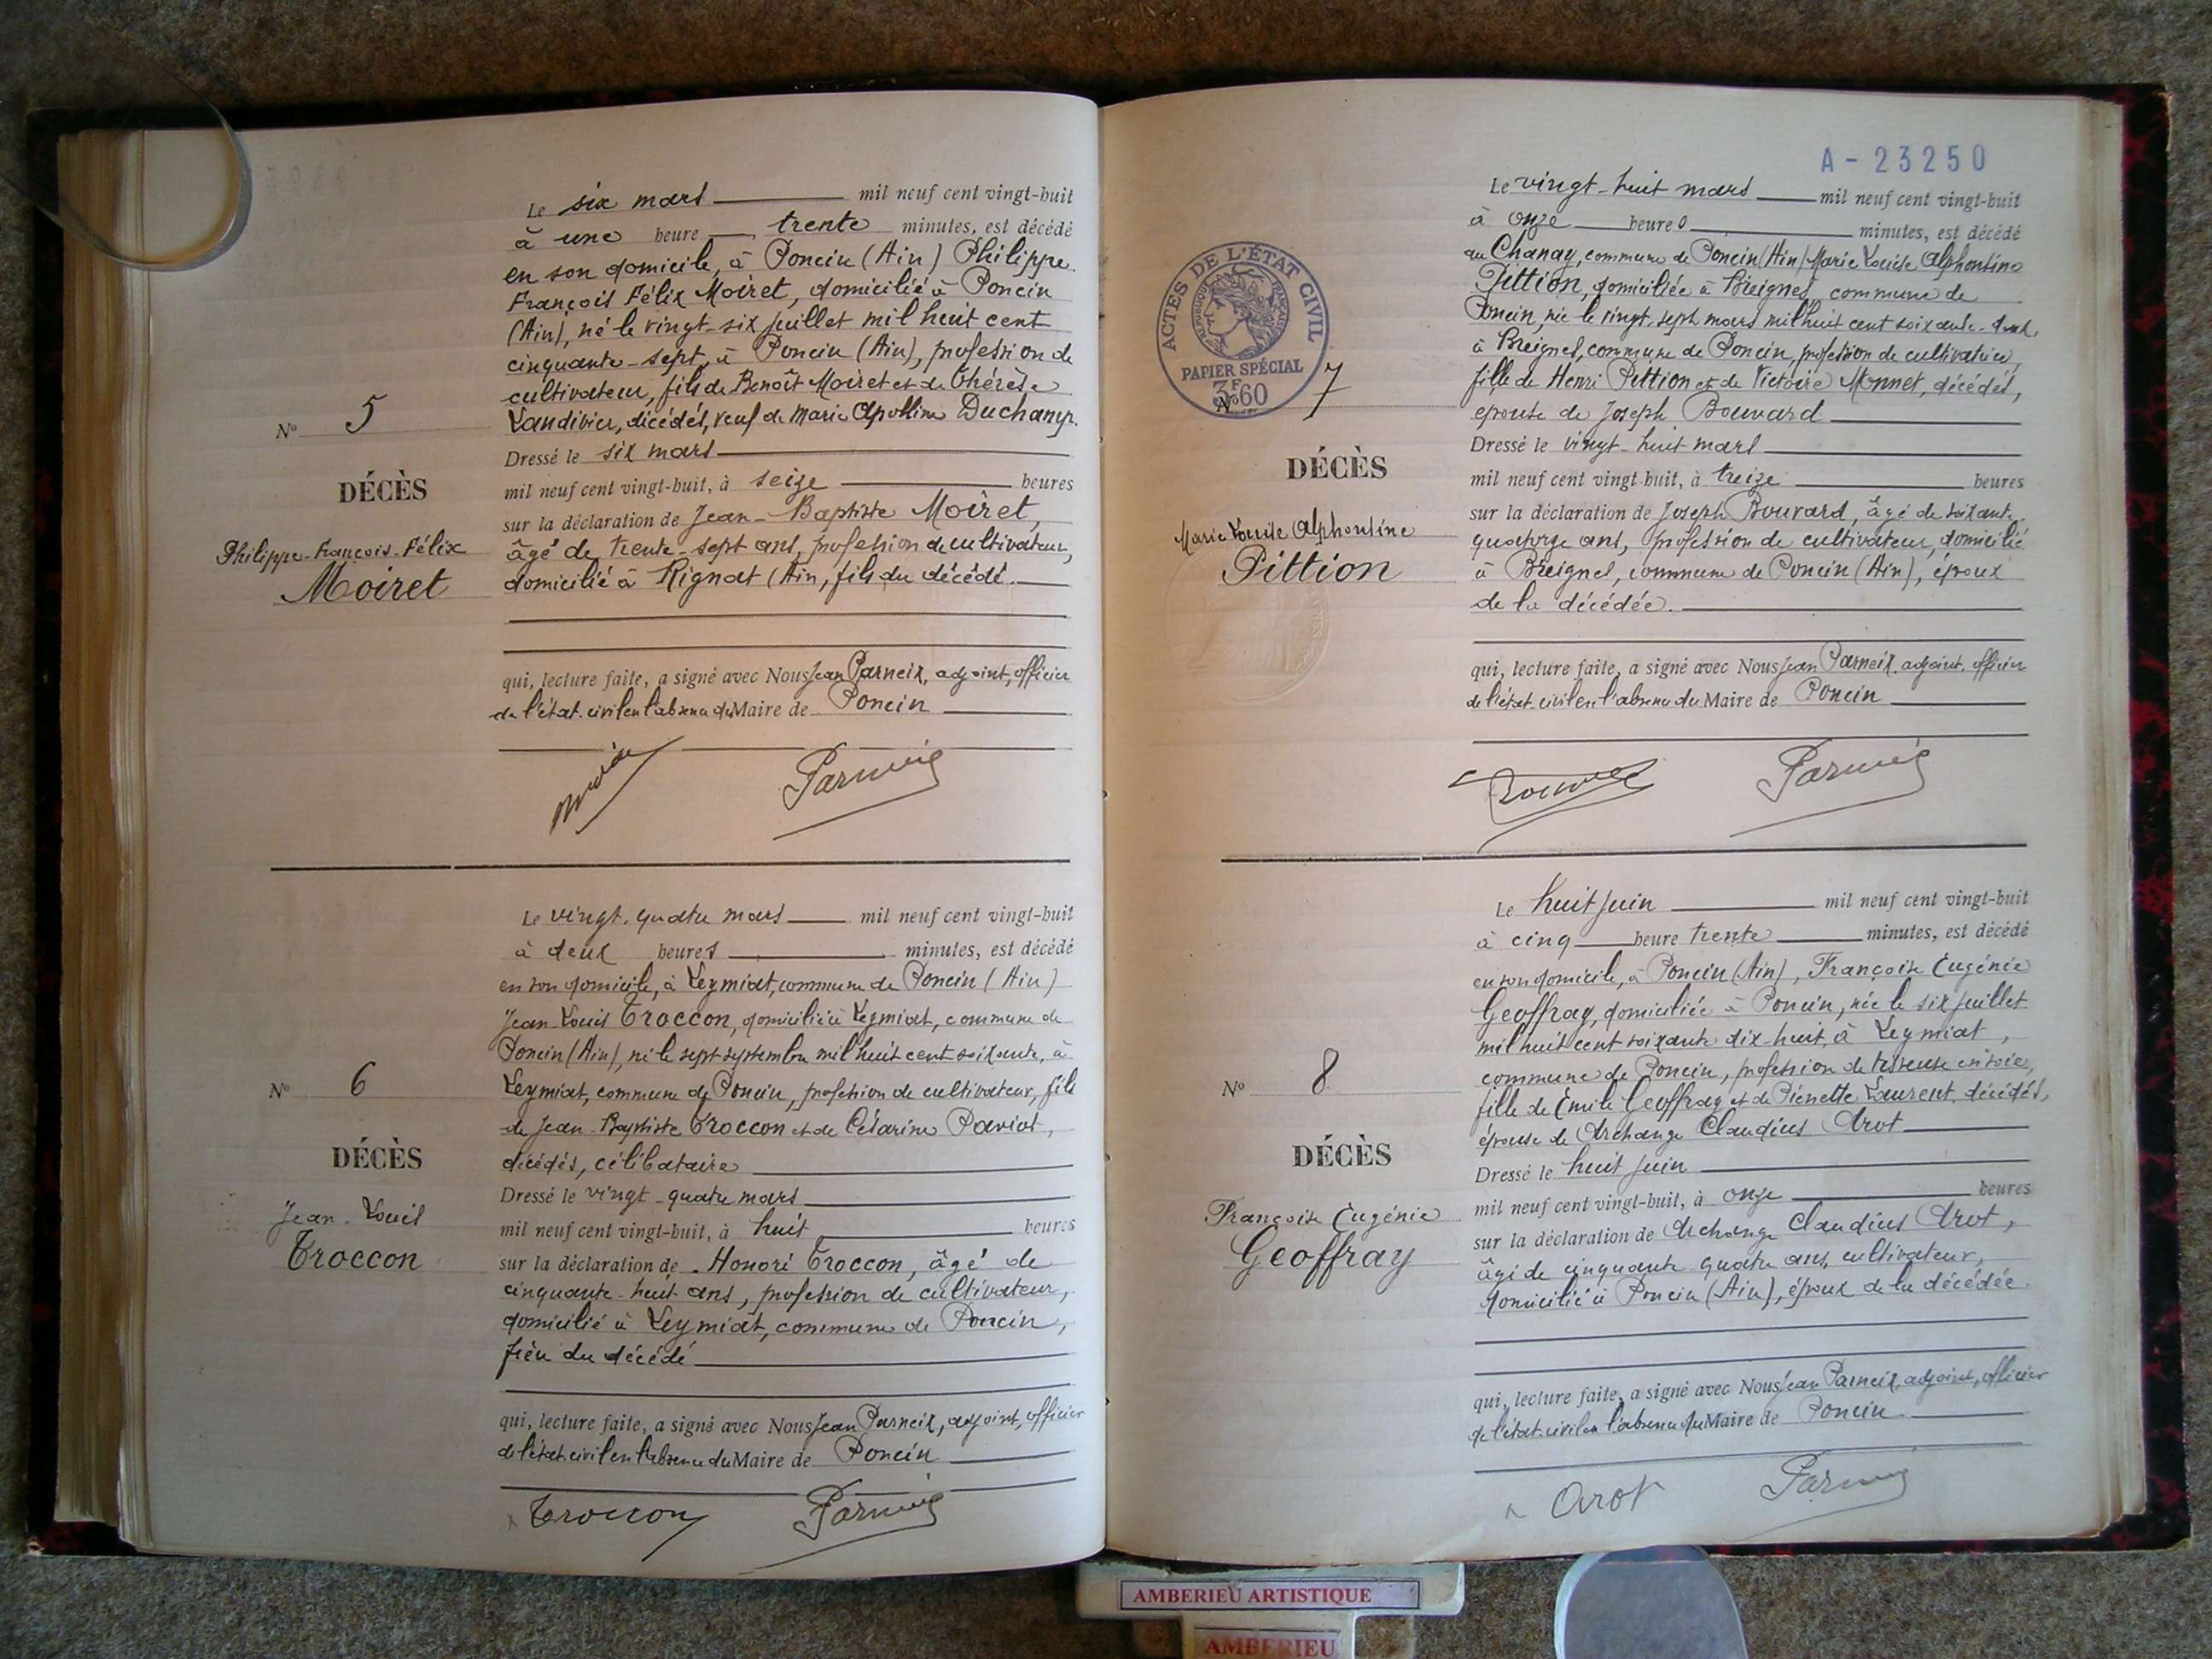 Le six mars mil neuf cent vingt-huit
à une heure trente minutes, est décédé
en son domicile, à Poncin (Ain) Philippe
François Félix Moiret, domicilié à Poncin
(Ain), né le vingt-six juillet mil huit cent
cinquante-sept, à Poncin (Ain), profession de
cultivateur, fils de Benoît Moiret et de Thérèse
décédés, veuf de Marie Apolline Duchamp.
Dressé le six mars
mil neuf cent vingt-huit, à seize heures
sur la déclaration de Jean-Baptiste Moiret,
âgé de trente-sept ans, profession de cultivateur,
domicilié à Rignat (Ain, fils du décédé.
qui, lecture faite, a signé avec Nous Jean Parneix, adjoint, officier
de l'état-civil en l'absence du Maire de Poncin
Nº 5
DÉCÈS
Philippe-François-Félix
Moiret
Le vingt-quatre mars mil neuf cent vingt-huit
à deux heures minutes, est décédé
en son domicile, à Leymiat, commune de Poncin (Ain)
Jean-Louis Troccon, domicilié à Leymiat, commune de
Poncin (Ain), né le sept septembre mil huit cent soixante, à
Leymiat, commune de Poncin, profession de cultivateur, fils
de Jean-Baptiste Troccon et de Césarine Paviot,
décédés, célibataire
Dressé le vingt-quatre mars
mil neuf cent vingt-huit, à huit heures
sur la déclaration de Honoré Troccon, âgé de
cinquante-huit ans, profession de cultivateur,
domicilié à Leymiat, commune de Poncin,
frère du décédé
qui, lecture faite, a signé avec Nous Jean Parneix, adjoint, officier
de l'état-civil en l'absence du Maire de Poncin
Troccon
Nº 6
DÉCÈS
Jean-Louis
Troccon
A-23250
Le vingt-huit mars mil neuf cent vingt-huit
à onze heures minutes, est décédé
au Chanay, commune de Poncin (Ain) Marie Louise Alphonsine
Pittion, domiciliée à Breignes, commune de
Poncin, née le vingt-sept mars mil huit cent soixante
à Breignes, commune de Poncin, profession de cultivatrice,
fille de Henri Pittion et de Victoire Monnet, décédés,
épouse de Joseph Bouvard
Dressé le vingt-huit mars
mil neuf cent vingt-huit, à treize heures
sur la déclaration de Joseph Bouvard, âgé de soixante
quatorze ans, profession de cultivateur, domicilié
à Breignes, commune de Poncin (Ain), époux
de la décédée.
qui, lecture faite, a signé avec Nous Jean Parneix, adjoint, officier
de l'état-civil en l'absence du Maire de Poncin
ACTES DE L'ÉTAT CIVIL
RÉPUBLIQUE FRANÇAISE
PAPIER SPÉCIAL
3F60
Nº 7
DÉCÈS
Marie Louise Alphonsine
Pittion
Le huit juin mil neuf cent vingt-huit
à cinq heure trente minutes, est décédé
en son domicile, à Poncin (Ain), Françoise Eugénie
Geoffray, domiciliée à Poncin, née le six juillet
mil huit cent soixante dix-huit, à Leymiat,
commune de Poncin, profession de tisseuse en soie,
fille de Emile Geoffray et de Pierrette Laurent, décédés,
épouse de Archange Claudius Arot
Dressé le huit juin
mil neuf cent vingt-huit, à onze heures
sur la déclaration de Archange Claudius Arot,
âgé de cinquante-quatre ans, cultivateur,
domicilié à Poncin (Ain), époux de la décédée.
qui, lecture faite, a signé avec Nous Jean Parneix, adjoint, officier
de l'état-civil en l'absence du Maire de Poncin
Arot
Nº 8
DÉCÈS
Françoise Eugénie
Geoffray
AMBERIEU ARTISTIQUE
AMBERIEU